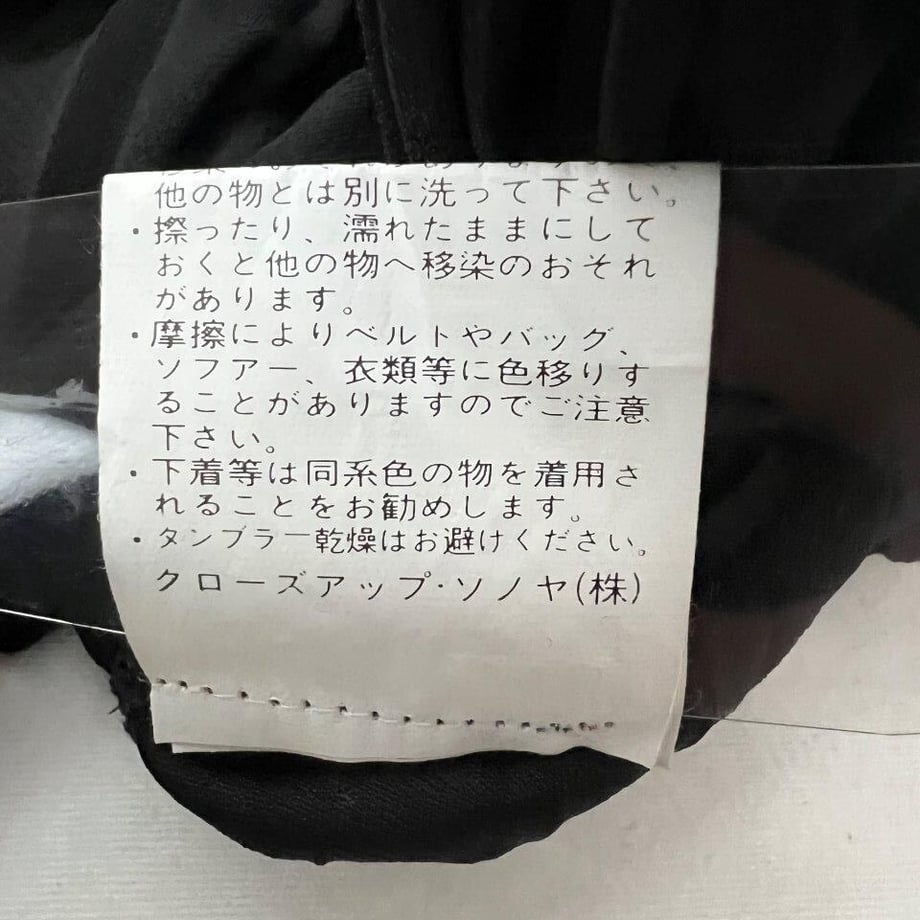 他の物とは別に洗って下さい。
・擦ったり、濡れたままにして
おくと他の物へ移染のおそれ
があります。
・摩擦によりベルトやバッグ、
ソファー、衣類等に色移りす
ることがありますのでご注意
下さい。
・下着等は同系色の物を着用さ
れることをお勧めします。
・タンブラー乾燥はお避けください。
クローズアップ・ソノヤ(株)